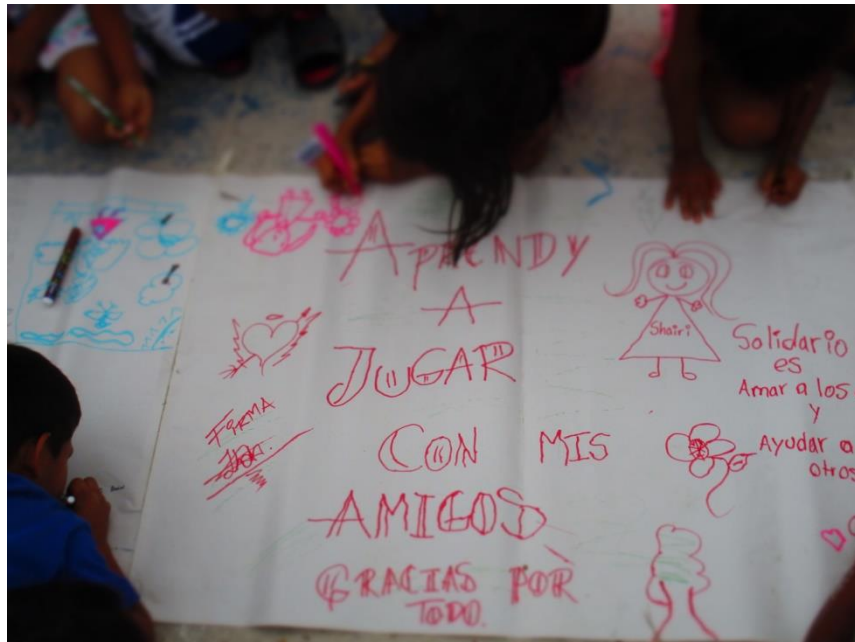 APRENDY
A
JUGAR
CON MIS
AMIGOS
GRACIAS POR
TODO.
FIRMA
Shairi
Solidario
es
Amar a los
y
Ayudar a
otros